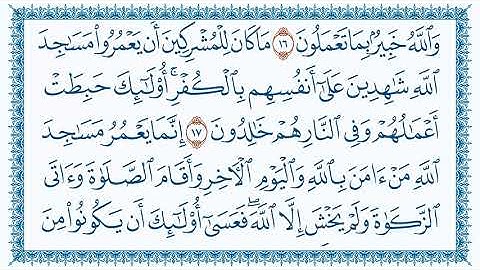 وَٱللَّهُ خَبِيرُۢ بِمَا تَعْمَلُونَ ١٦ مَا كَانَ لِلْمُشْرِكِينَ أَن يَعْمُرُوا۟ مَسَٰجِدَ
ٱللَّهِ شَٰهِدِينَ عَلَىٰٓ أَنفُسِهِم بِٱلْكُفْرِ ۚ أُو۟لَٰٓئِكَ حَبِطَتْ
أَعْمَٰلُهُمْ وَفِى ٱلنَّارِ هُمْ خَٰلِدُونَ ١٧ إِنَّمَا يَعْمُرُ مَسَٰجِدَ
ٱللَّهِ مَنْ ءَامَنَ بِٱللَّهِ وَٱلْيَوْمِ ٱلْءَاخِرِ وَأَقَامَ ٱلصَّلَوٰةَ وَءَاتَى
ٱلزَّكَوٰةَ وَلَمْ يَخْشَ إِلَّا ٱللَّهَ ۖ فَعَسَىٰٓ أُو۟لَٰٓئِكَ أَن يَكُونُوا۟ مِنَ